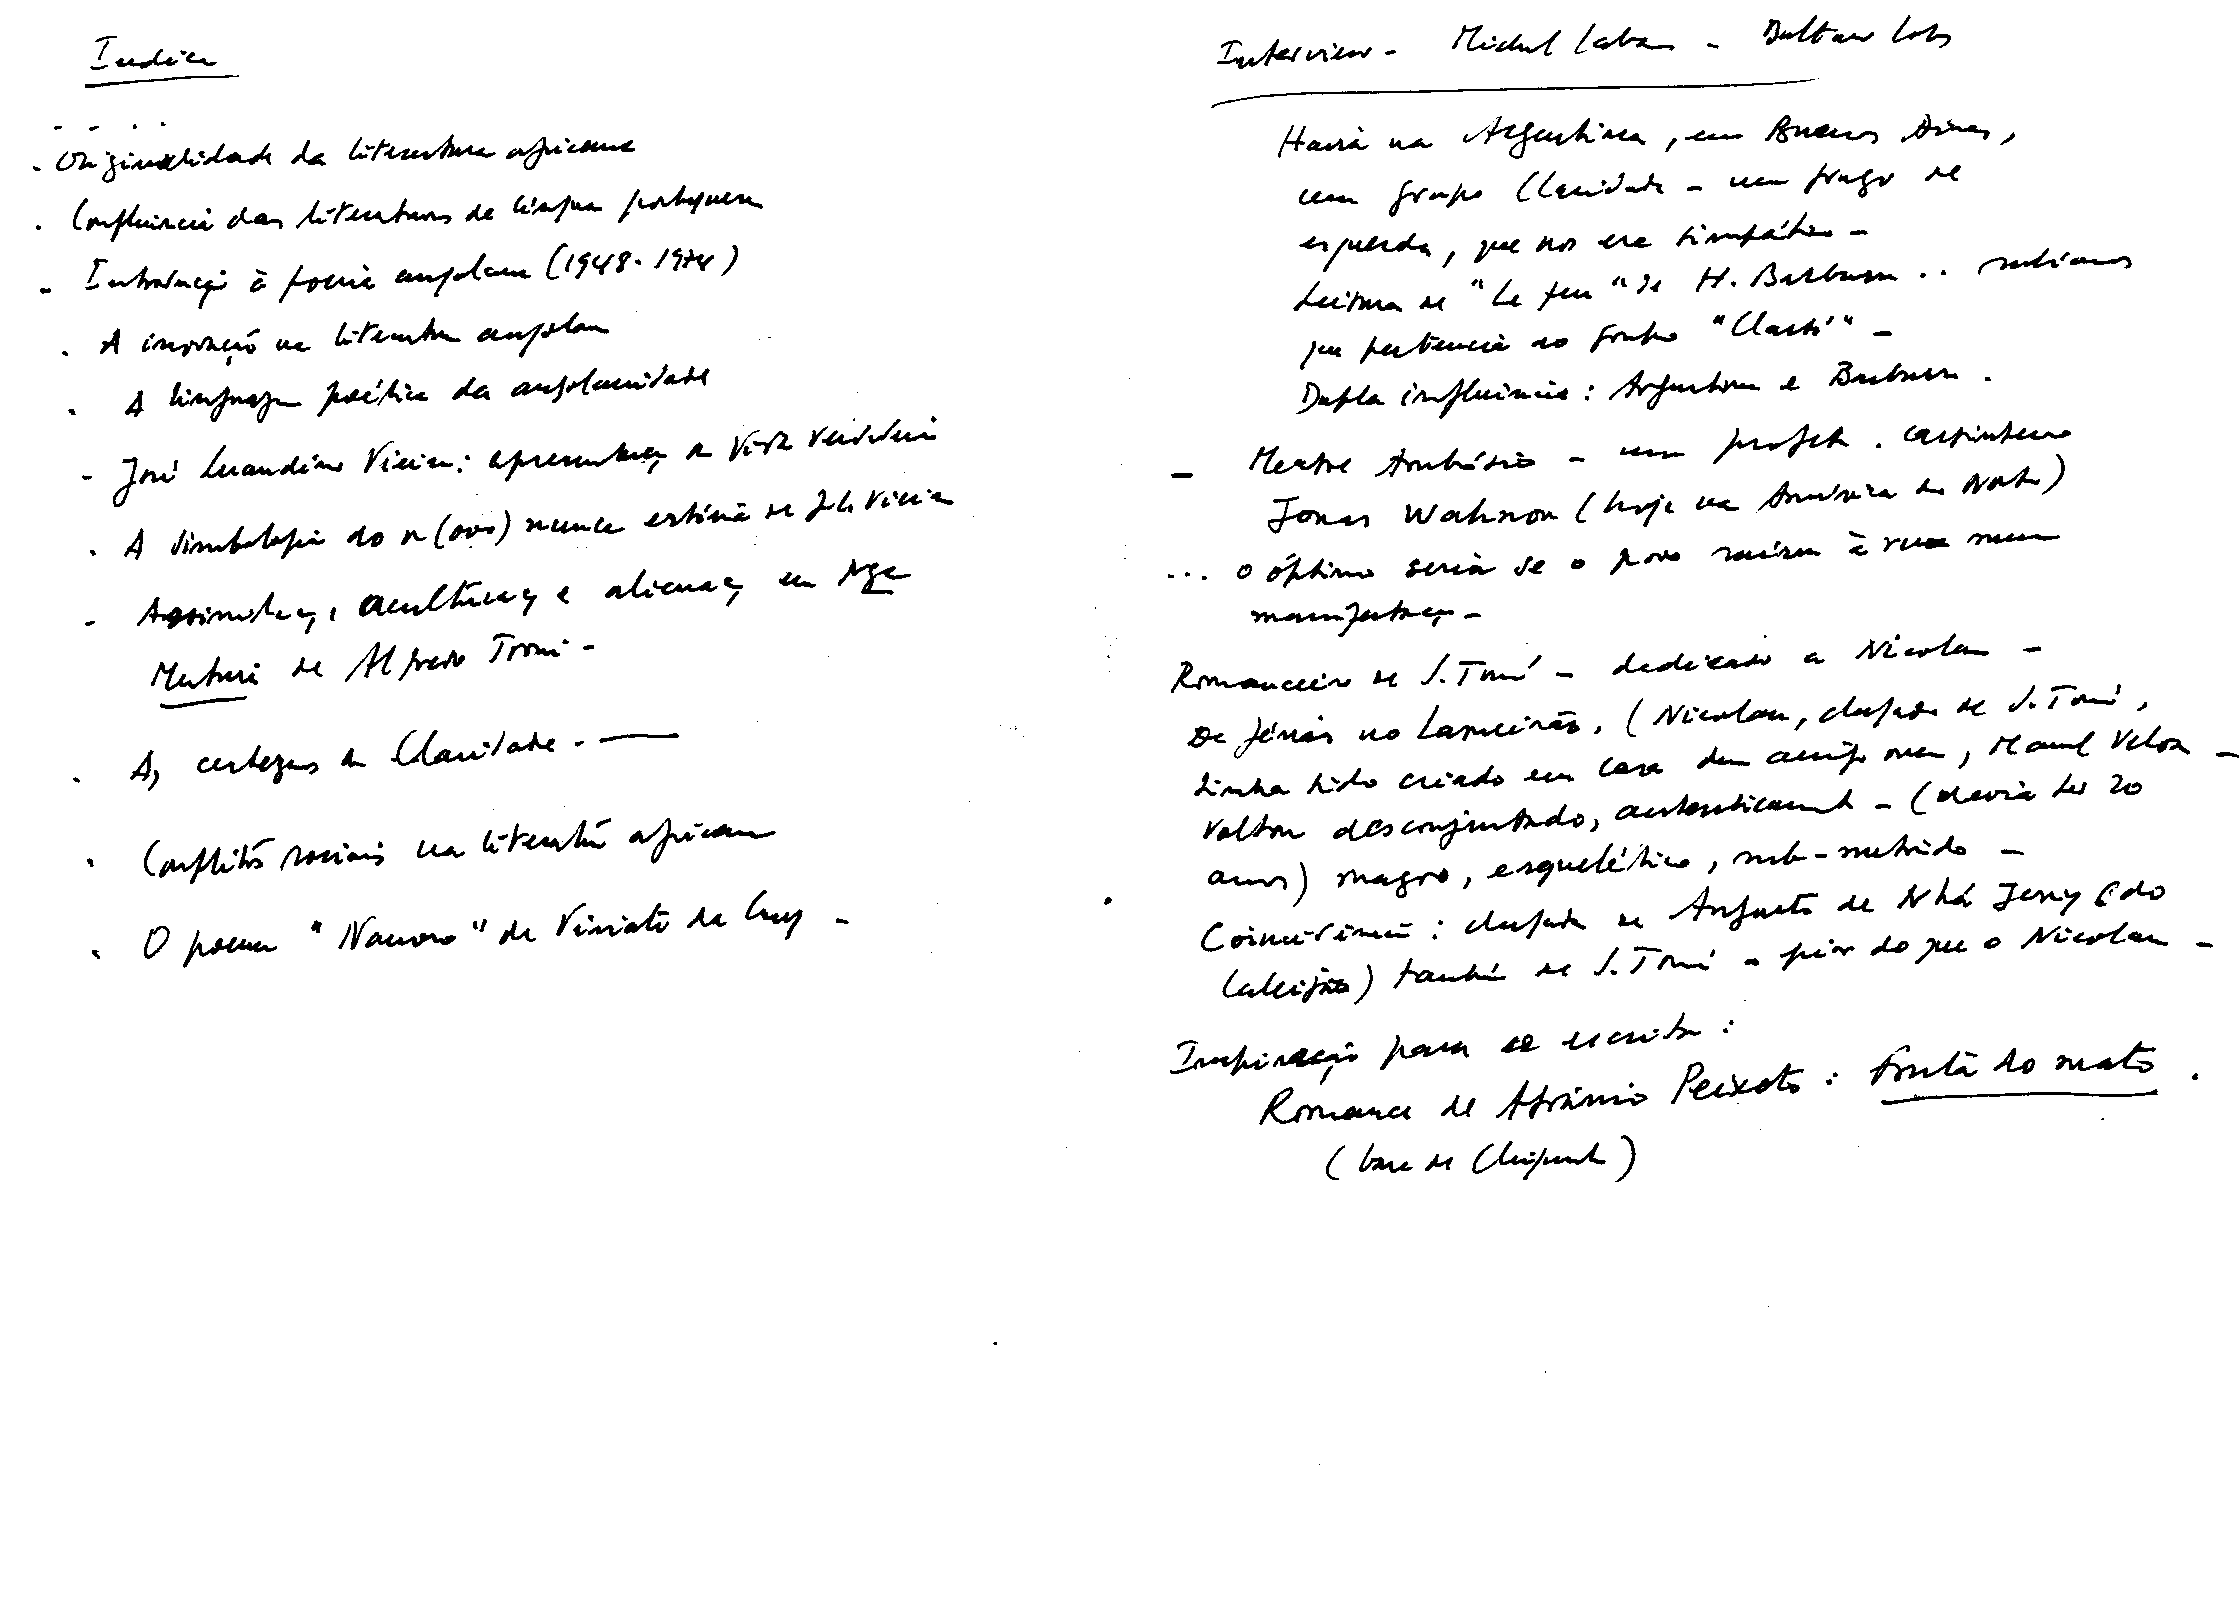 Indice
- - . .
- Originalidade da literatura africana
. Confluência das literaturas de língua portuguesa
- Introdução à poesia angolana (1948-1974)
. A inovação na literatura angolana
. A linguagem poética da angolanidade
- José Luandino Vieira: apresentação de Vida Verdadeira
. A simbologia do n(ovo) numa estória de Vieira
- Assimilação, aculturação e alienação em Nga
Muturi de Alfredo Troni -
. As certezas da Claridade. —
. Conflitos sociais na literatura africana
. O poema "Namoro" de Viriato da Cruz -
Interview - Michel Laban - Baltasar Lopes
Havia na Argentina, em Buenos Aires,
um grupo Claridade - um grupo de
esquerda, que nos era simpático -
Leitura de "Le feu" de H. Barbusse .. sabíamos
que pertencia ao grupo "Clarté" -
Dupla influência: Argentina e Barbusse.
- Mestre Ambrósio - um profeta. carpinteiro
Jonas Wahnon (hoje na América do Norte)
... o óptimo seria se o povo saísse à rua numa
manifestação -
Romanceiro de S. Tomé - dedicado a Nicolau -
De férias no Lameirão. (Nicolau, chegado de S. Tomé,
tinha sido criado em casa dum amigo meu, Manuel Veloso -
Voltou desconjuntado, autenticamente - (devia ter 20
anos) magro, esquelético, sub-nutrido -
Coincidência: chegada de Augusto de Nhá Jeny (do
Caleijão) também de S. Tomé - pior do que o Nicolau -
Inspiração para a escrita:
Romance de Afrânio Peixoto: Fruta do mato.
(base de Chiquinho)